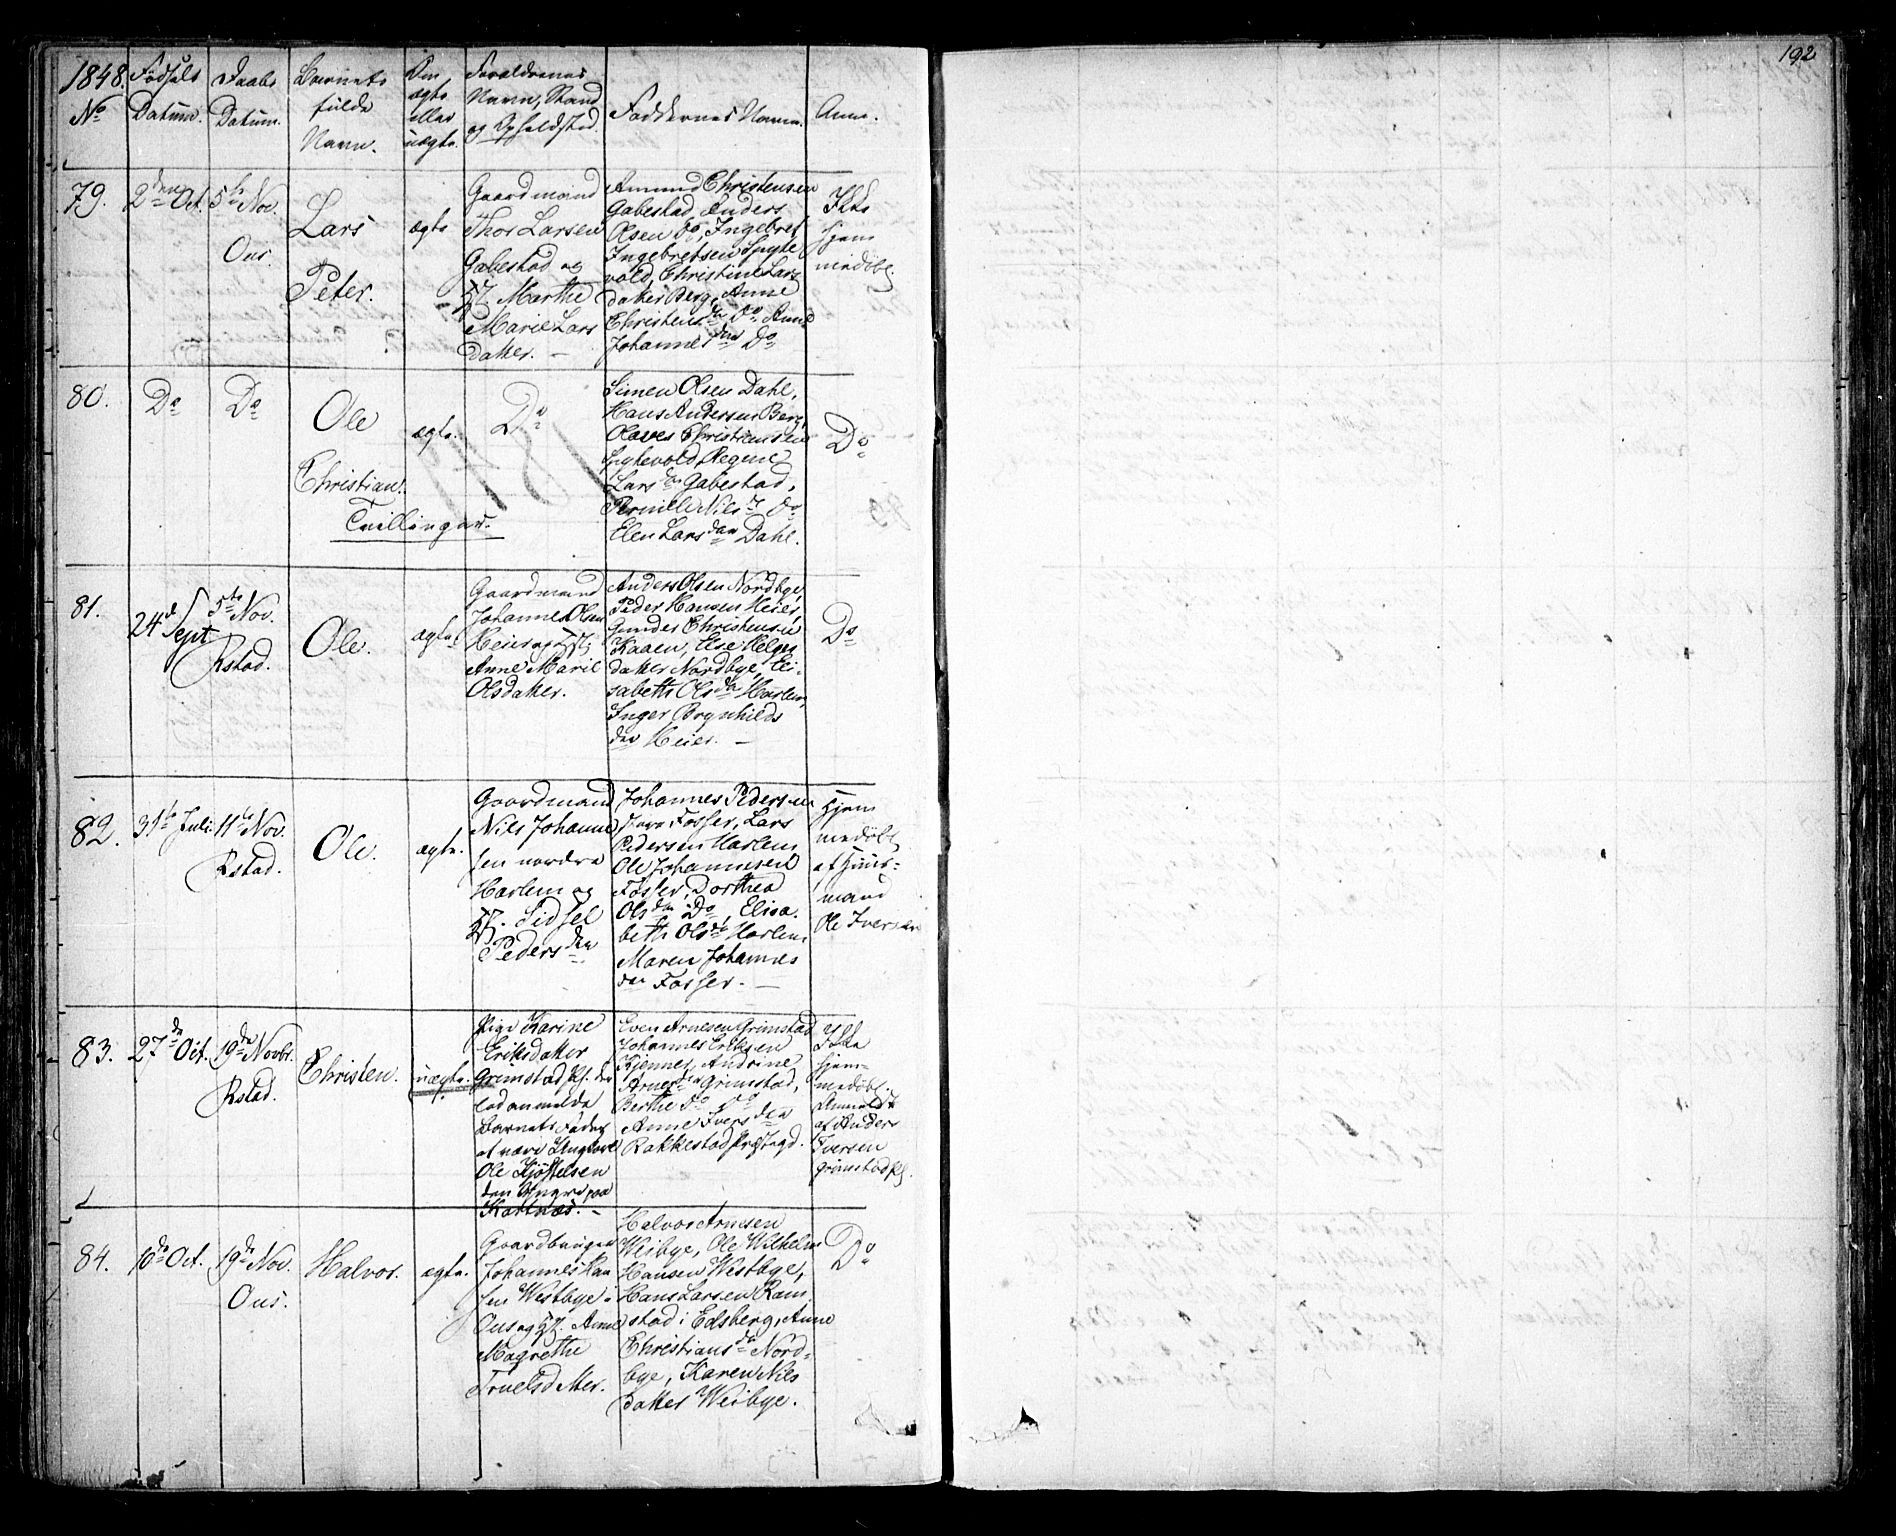 192
1848. No
Fødsels Datum.
Daabs Datum.
Barnets fulde Navn.
Om ægte eller uægte.
Forældrenes Navn, Stand og Opholdsted.
Faddernes Navne.
Anm.
79.
2den Oct.
5te Nov.
Ous.
Lars
Peter.
ægte
Gaardmand
Thos Larsen
Gabestad og
Marthe
Marie Lars
datter. —
Amund Christensen
Gabestad, Anders
Olsen Do, Ingebret
Ingebretsen Spyte
vold, Christine Lars
datter Berg, Anne
Christensda Do, Anne
Johannesda Do
Ikke
hjem
medøbt
80.
Do
Do
Ole
Christian.
Tvillinger.
ægte.
Do
Simen Olsen Dahl,
Hans Andersen Berg,
Olaves Christiansen
Spytevold, Regine
Larsda Gabestad,
Pernille Nilsd Do
Elen Larsdaer Dahl.
Do
81.
24d Sept
5te Nov.
Rstad.
Ole.
ægte
Gaardmand
Johannes Olsen
Heier og
Anne Marie
Olsdatter.
Anders Olsen Nordbye,
Peder Hansen Heier,
Gunder Christensen
Kaaen, Else Helges
datter Nordbye, Eli-
sabeth Olsda Harlem,
Inger Brynhilds
daer Heier. —
Do
82.
31te Juli
11te Nov.
Rstad.
Ole.
ægte.
Gaardmand
Nils Johanne
sen nordre
Harlem og
Sidsel
Pedersdaer
Johannes Pedersen
Fosser, Lars
Pedersen Harlem
Ole Johannesen
Fosser, Dorthea
Olsdaer Do, Elisa-
beth Olsdr Harlem,
Maren Johannes
daer Fosser. —
Hjem
medøbt
af Huus-
mand
Ole Iversen
83.
27de Oct.
19de Novbr.
Rstad.
Christen.
uægte.
Pige Karine
Eriksdatter
Grimstad
lod anmelde
Barnets Fader
at være Ungkarl
Ole Kjøstelsen
den Yngre paa
Kattnæs. —
Even Arnesen Grimstad
Johannes Eriksen
Kjenner, Andrine
Arnesda Grimstad,
Berthe Do Do
Anne Iversdaer
Rakkestad Præstegd.
Ikke
hjem-
medøbt.
Anmeldt
af Anders
Iversen
Grimstad
84.
10de Oct.
19de Nov.
Ous.
Halvor.
ægte.
Gaardbruger
Johannes Han
sen Westbye i
Ous og Anne
Magrethe
Truelsdtter.
Halvor Arnesen
Weibye, Ole Wilhelm
Hansen Westbye,
Hans Larsen Ram-
stad i Edsberg, Anne
Christiansda Nord-
bye, Karen Nils
datter Weibye.
Do